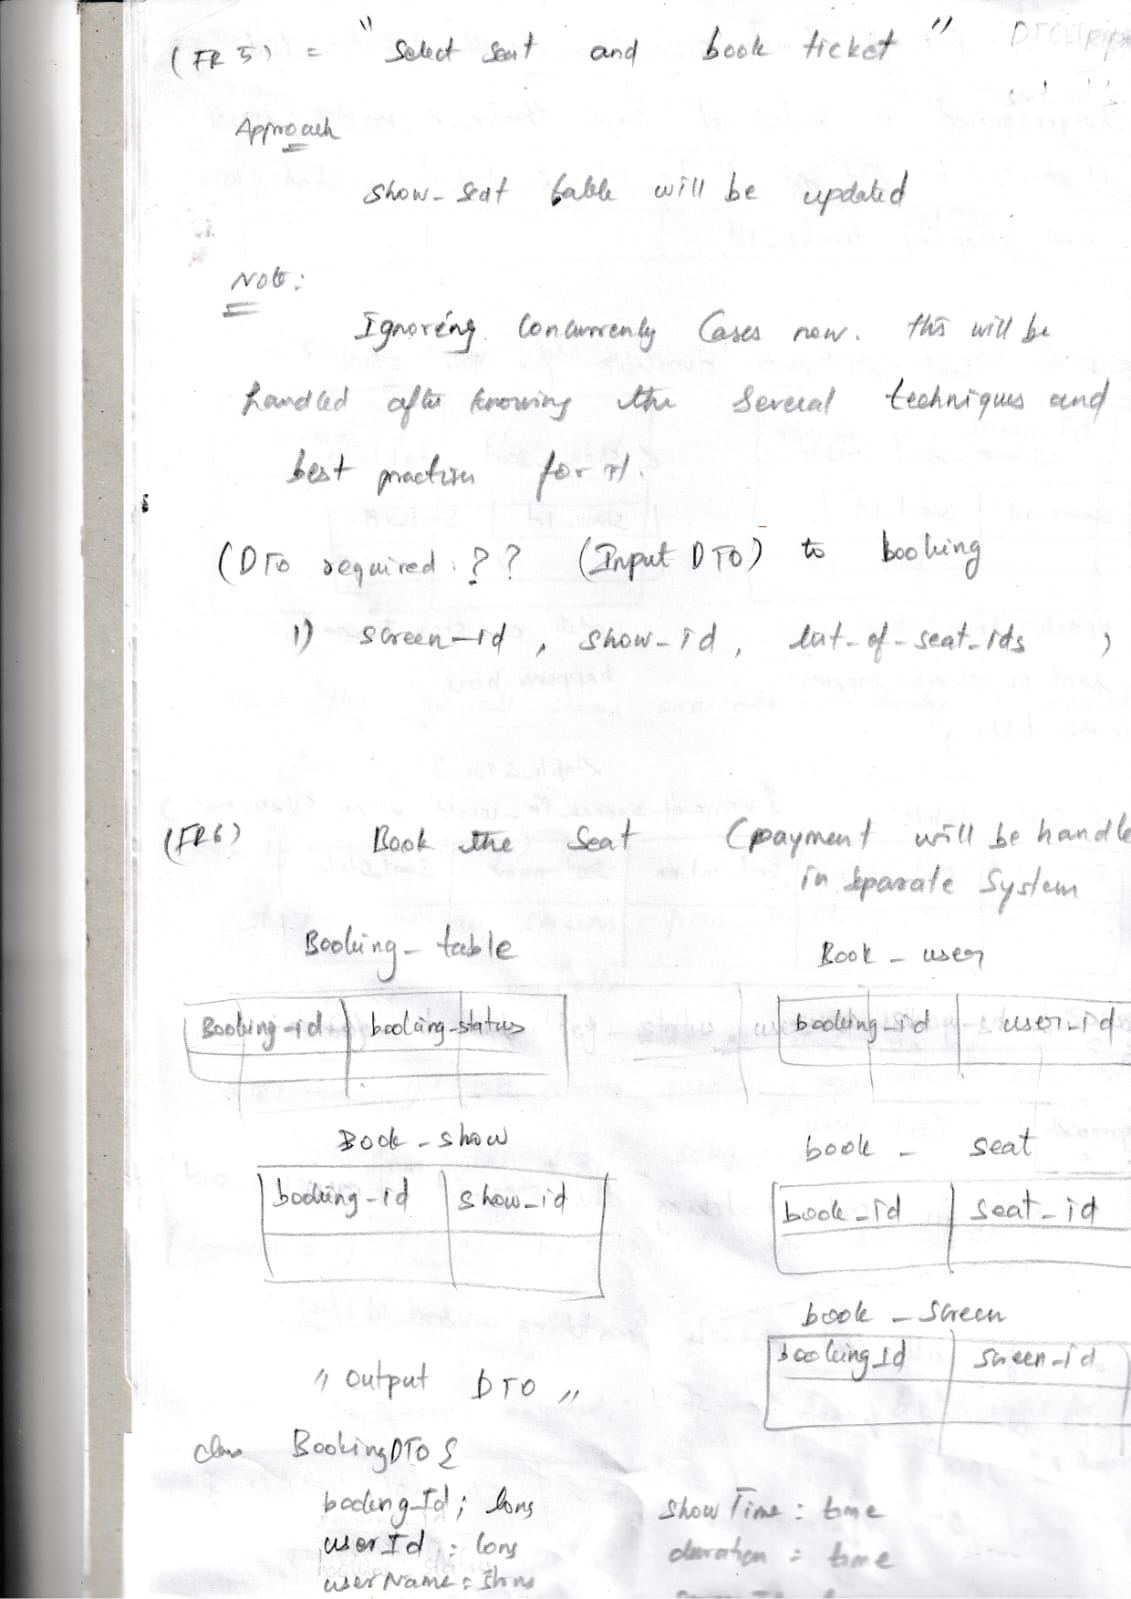 (FR 5) = " Select Seat and book ticket "
Approach
show-seat table will be updated
Note:
Ignoring Concurrenly Cases now. this will be
handled after knowing the several techniques and
best practices for it.
(DTO required : ?? (Input DTO) to booking
1) screen-id, show-id, list-of-seat-ids )
(FR6) Book the Seat (payment will be handle
in separate System
Booking-table Book-user
Booking-id booking-status booking-id user-id
Book-show book - seat
booking-id show-id book-id seat-id
book-screen
booking Id screen-id
" output DTO "
class BookingDTO {
booking-Id; long showTime : time
userId : long duration : time
userName :